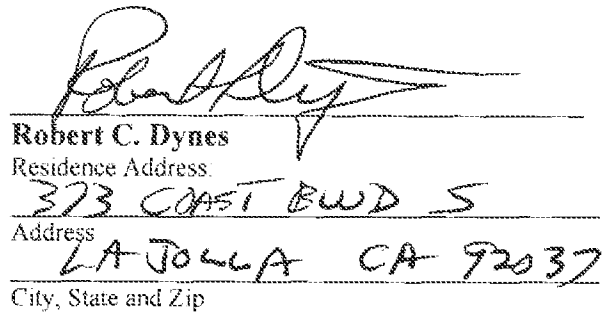 Robert Dy
Robert C. Dynes
Residence Address:
373 COAST BLVD S
Address
LA JOLLA CA 92037
City, State and Zip